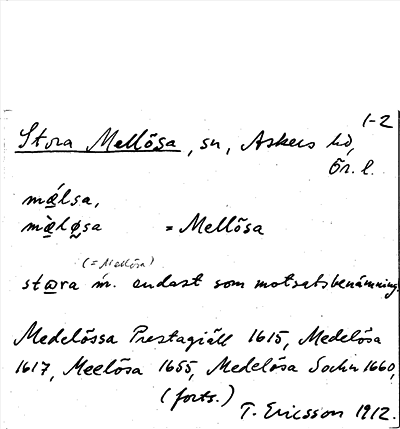 1-2
Stora Mellösa, sn, Askers hd,
Ör. l.
mǽlsa,
mæ̀lǫsa = Mellösa
(= Mellösa)
stɷra m. endast som motsatsbenämning.
Medelössa Prestagiäll 1615, Medelösa
1617, Meelösa 1655, Medelösa Sochn 1660,
(forts.)
T. Ericsson 1912.